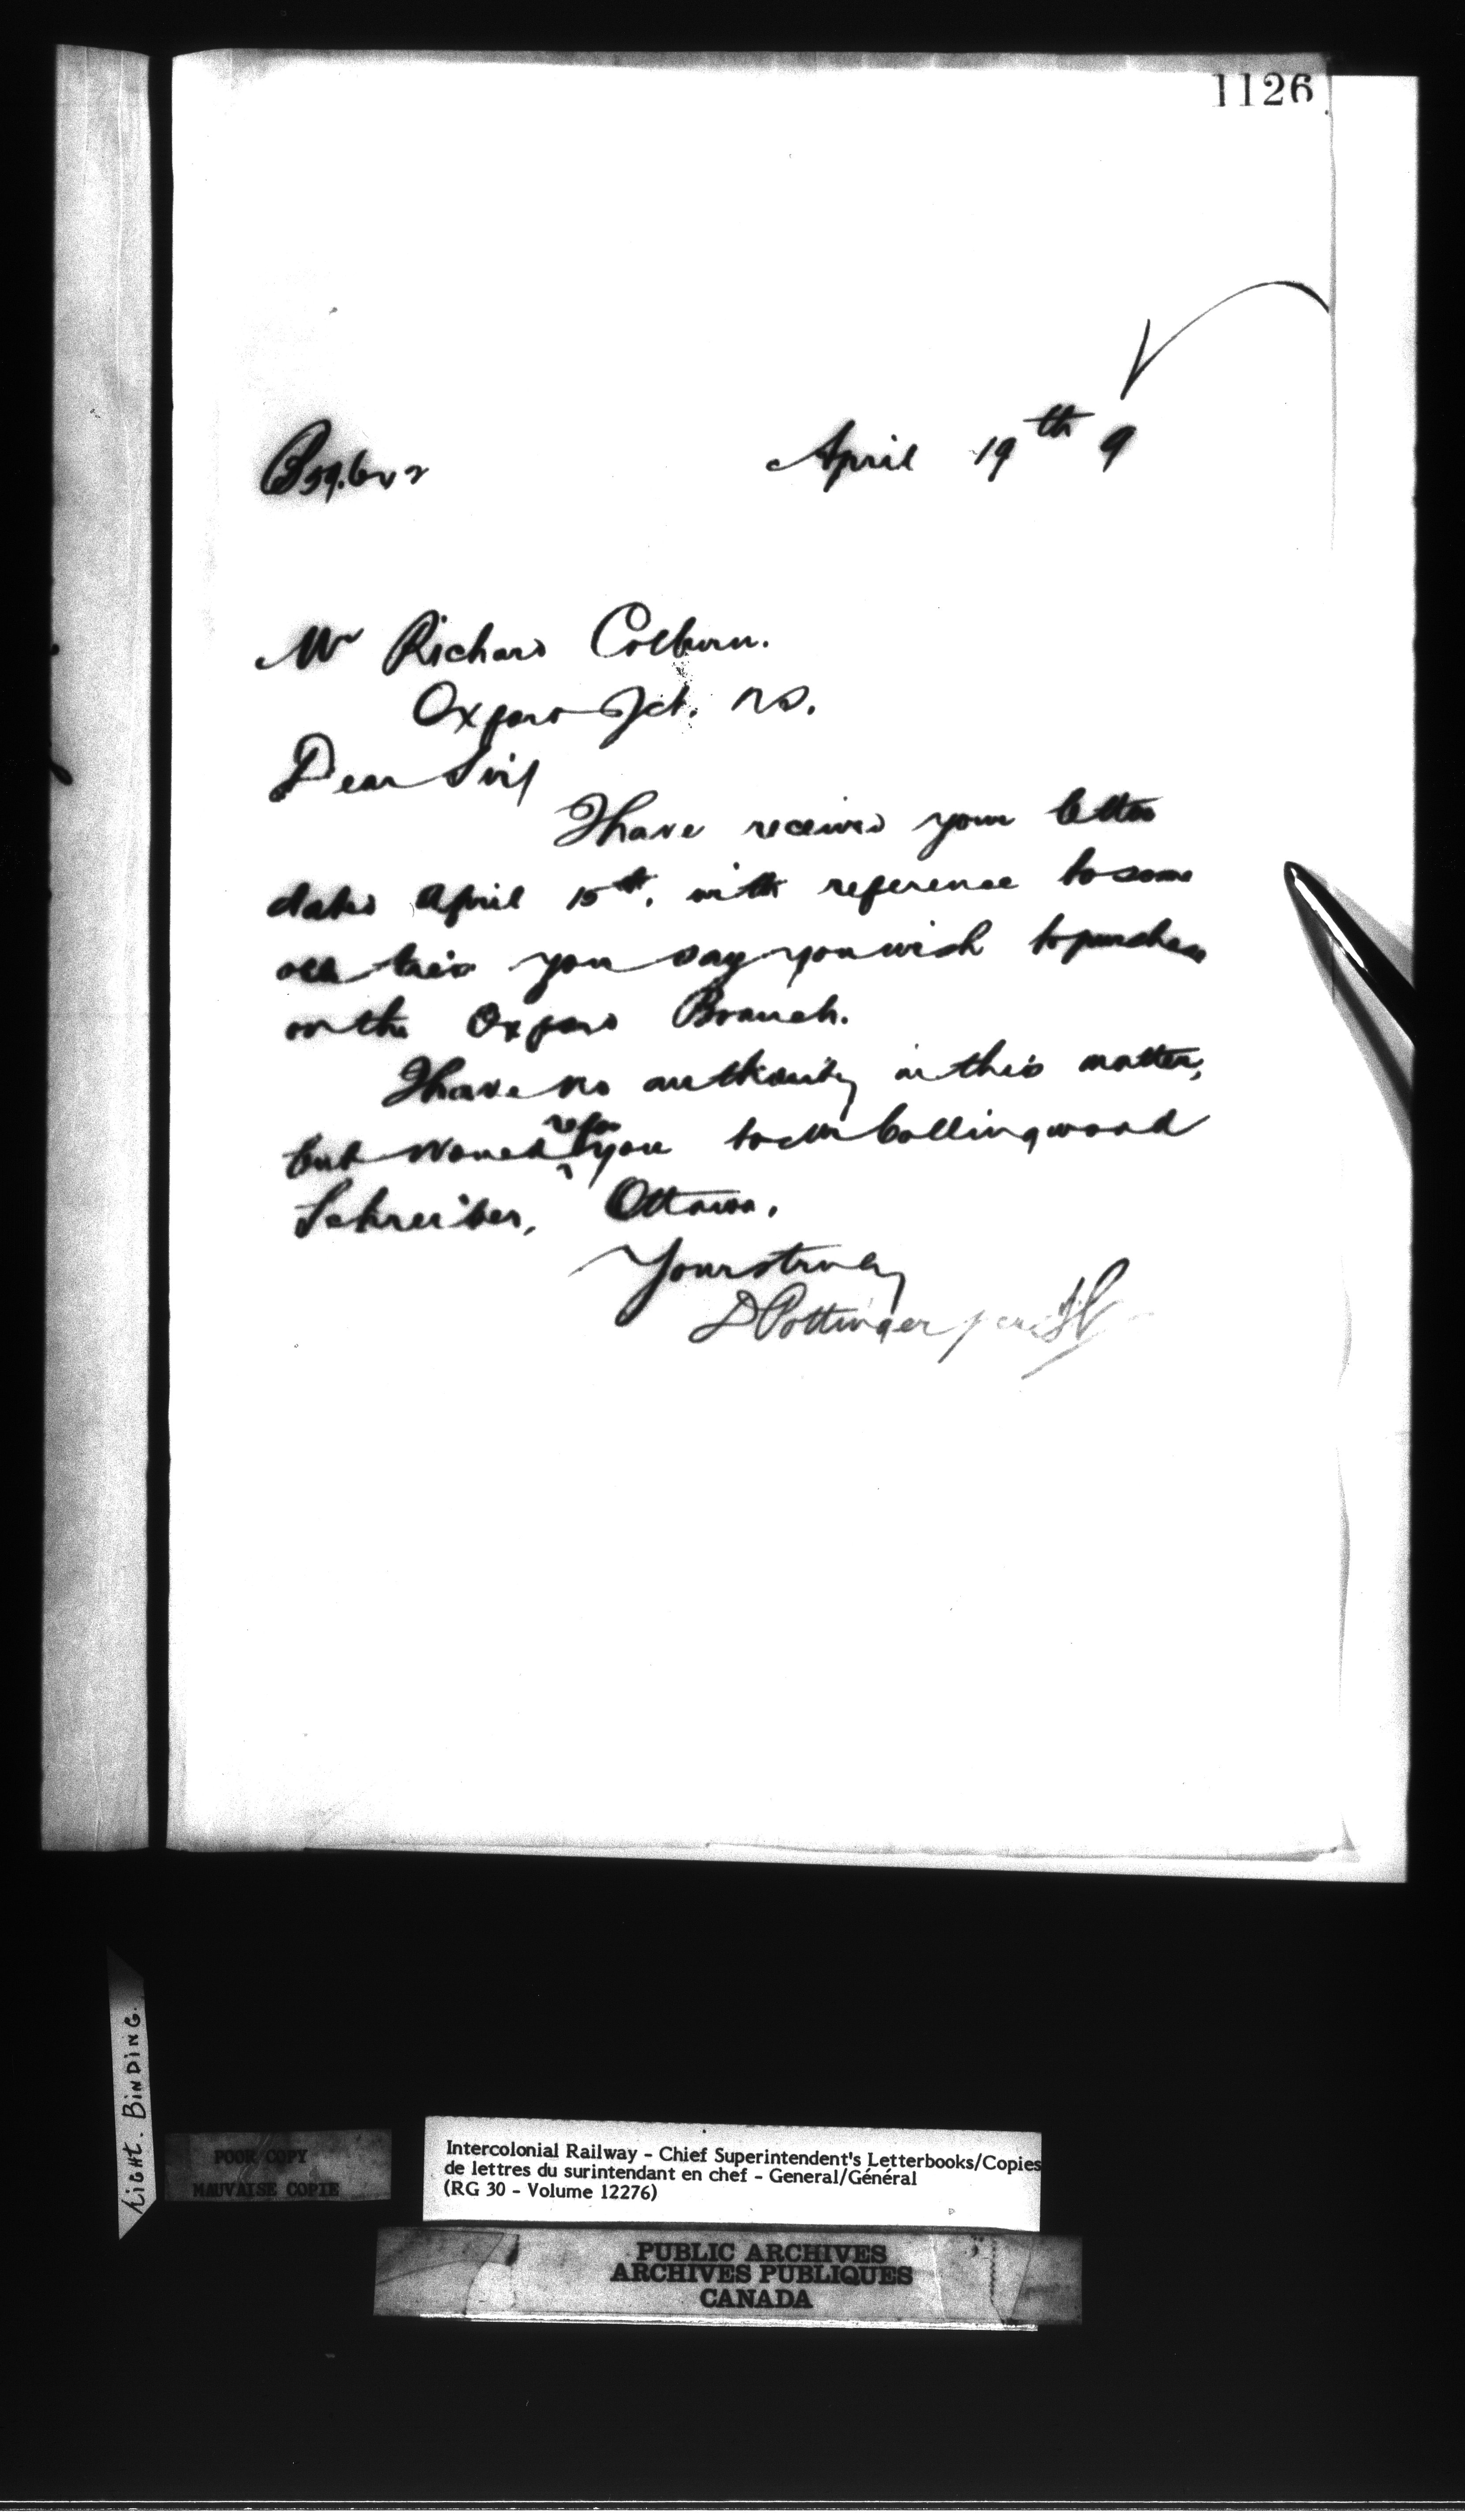 1126
April 19th 9
Mr Richard Colburn.
Oxford Jct. N.S.
Dear Sir/
I have received your letter
dated April 15th, with reference to some
old ties you say you wish to purchase
on the Oxford Branch.
I have no authority in this matter,
but would refer you to Mr Collingwood
Schreiber, Ottawa.
Yours truly
D Pottinger per
Tight. Binding.
POOR COPY
MAUVAISE COPIE
Intercolonial Railway - Chief Superintendent's Letterbooks/Copies
de lettres du surintendant en chef - General/Général
(RG 30 - Volume 12276)
PUBLIC ARCHIVES
ARCHIVES PUBLIQUES
CANADA